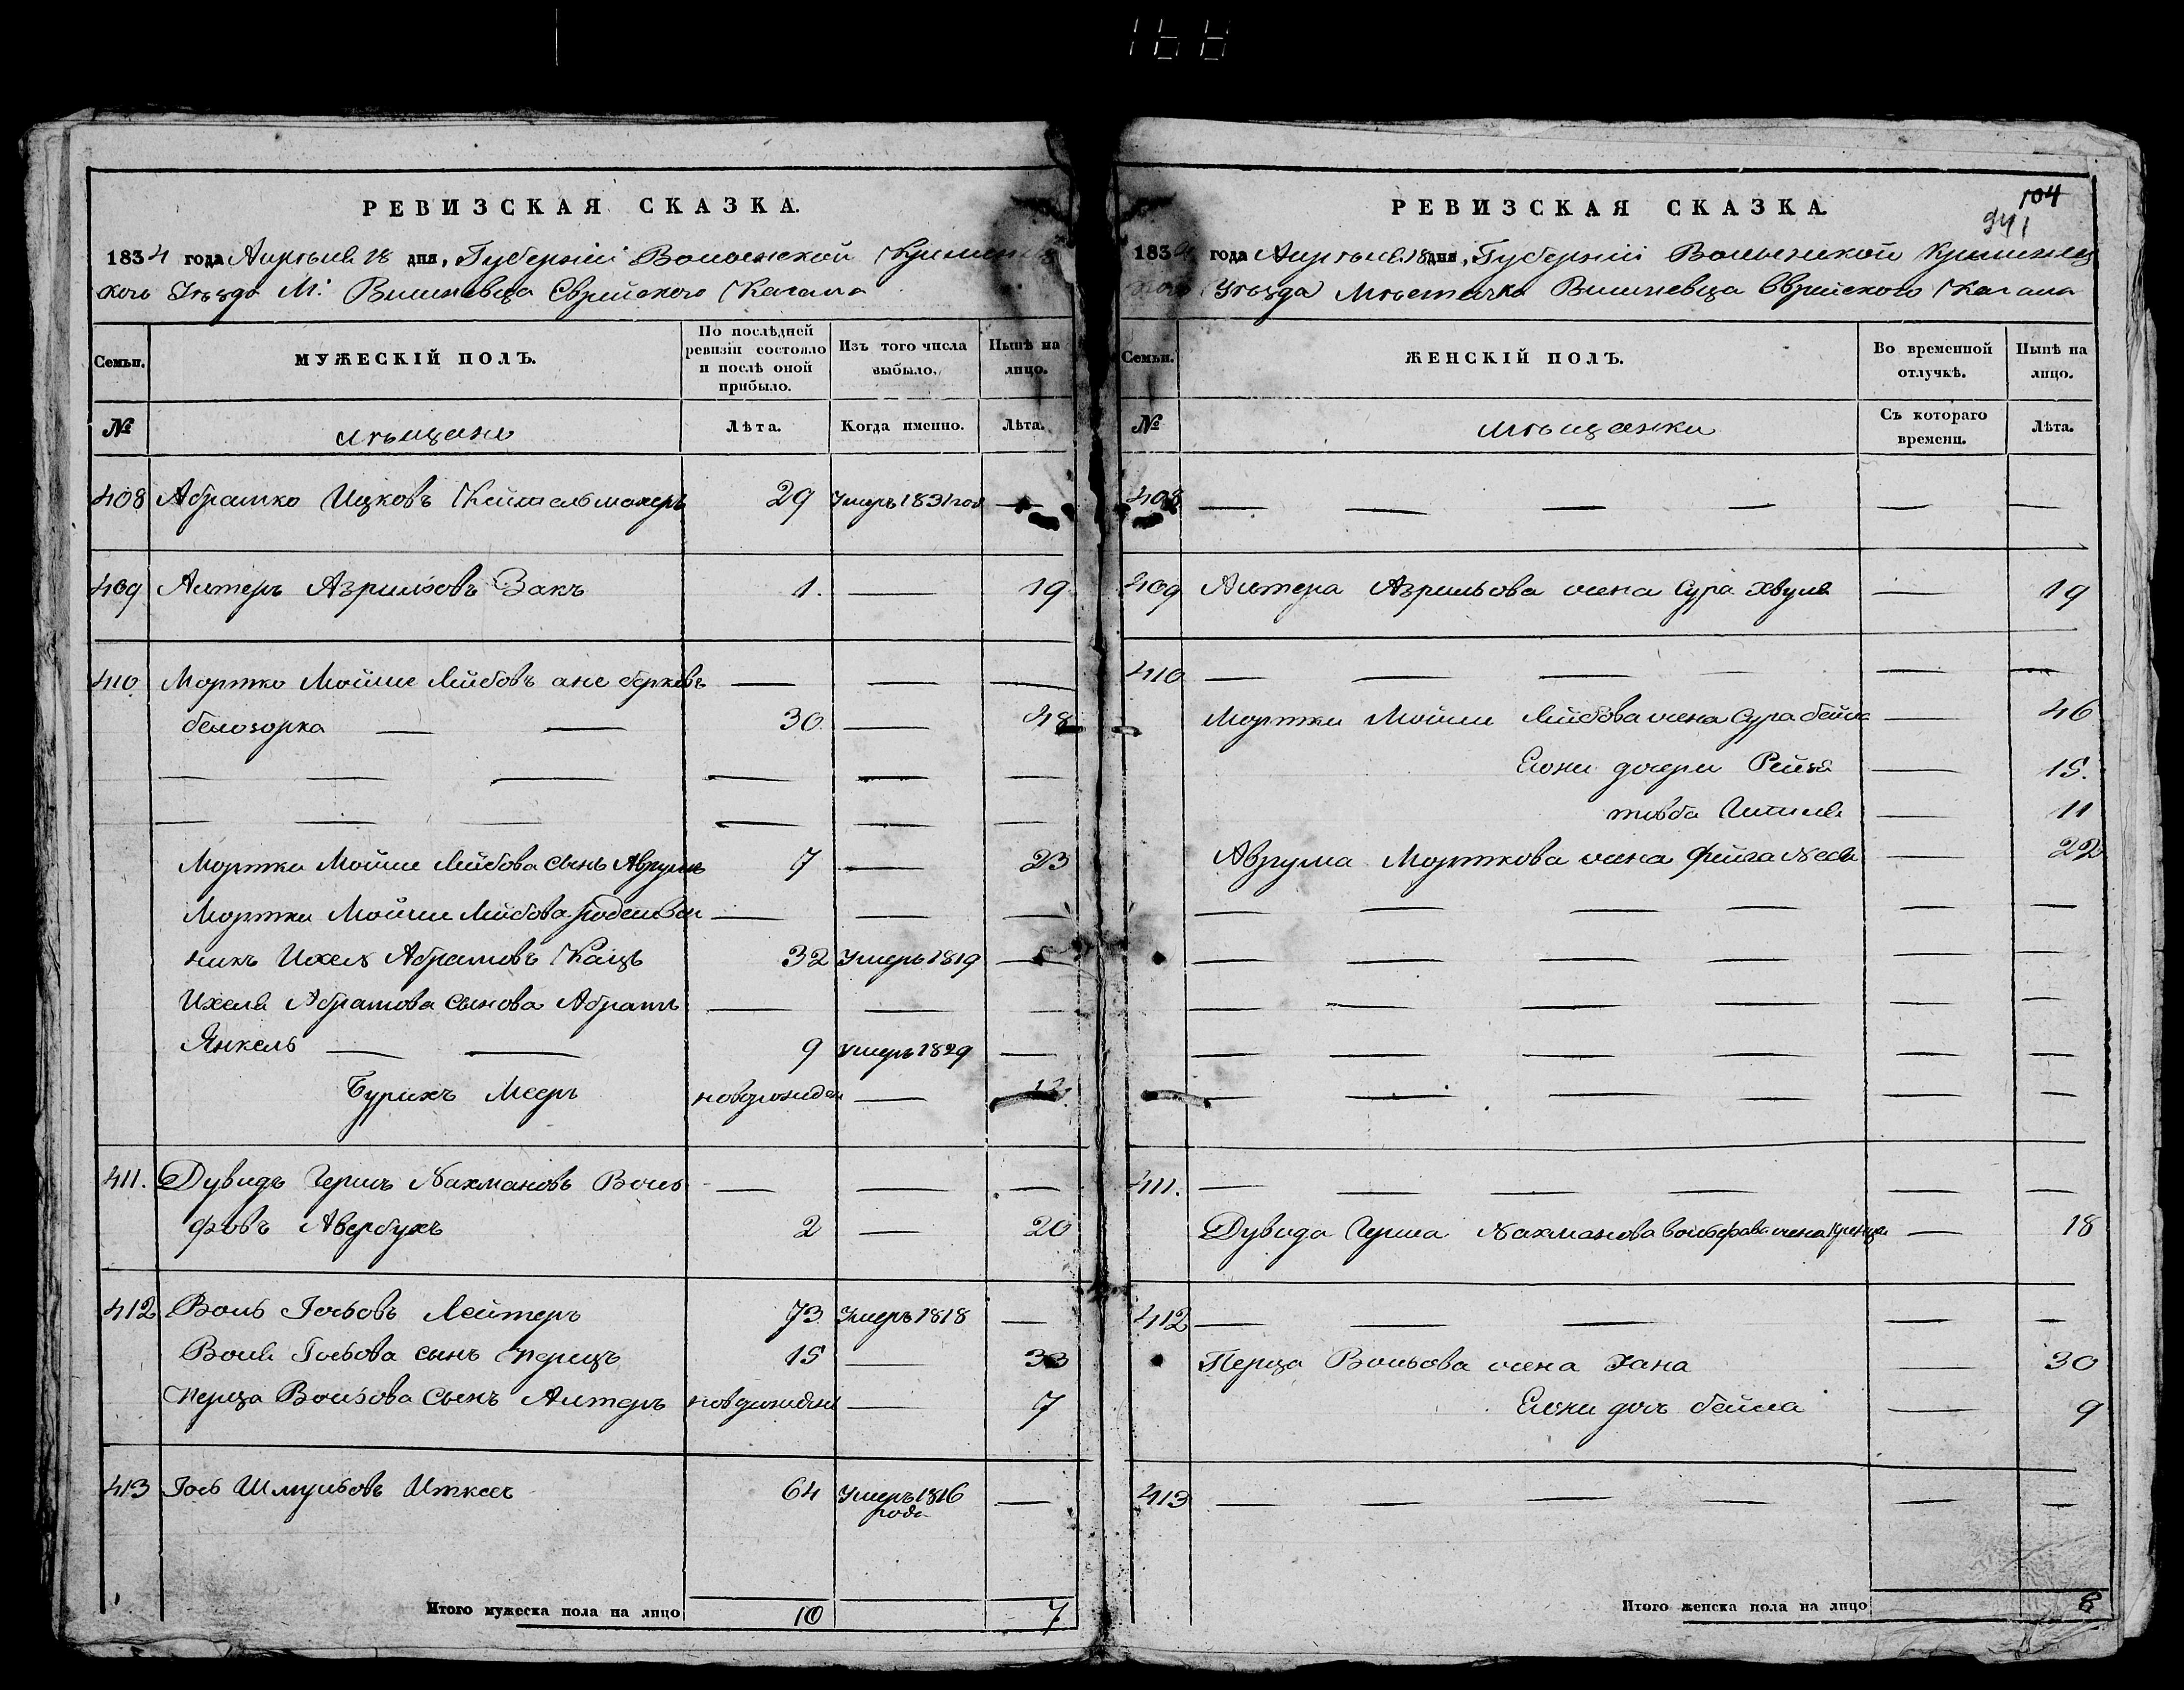 168
РЕВИЗСКАЯ СКАЗКА.
1834 года Апреля 18 дня, Губернiи Волынской Кременец
кого Уѣзда М: Вишневца Еврейского Кагала
Семьи. МУЖЕСКIЙ ПОЛЪ. По послѣдней ревизiи состояло и послѣ оной прибыло. Изъ того числа выбыло. Нынѣ на лицо.
№ мѣщане Лѣта. Когда именно. Лѣта.
408 Абрамко Ицковъ 29 Умеръ 1831 год —
409 Алтеръ Азрильовъ Закъ 1. — 19
410. Мортко Мойше Лейбовъ ане берковъ — — —
белозорка — — 30. — 48
— — — — — —
— — — — — —
Мортки Мойши Лейбова сынъ Аврумъ 7 — 23
Мортки Мойши Лейбова родствен — — —
никъ Ихель Абрамовъ Кацъ 32 Умеръ 1819 —
Ихеля Абрамова сынова Абрамъ — — —
Янкель — — 9 Умеръ 1829 —
Бурихъ Мееръ новорожден —
411. Дувидъ Гершъ Нахмановъ Воль — — —
фовъ Авербухъ 2 — 20
412 Воль Iосьовъ Лейтеръ 73. Умеръ 1818 —
Воля Iосьова сынъ Перецъ 15 — 33
Перца Вольова сынъ Алтеръ новорожден — 7
413 Iось Шмульовъ 64 Умеръ 1816 —
года
Итого мужеска пола на лицо 10 7
104
941
РЕВИЗСКАЯ СКАЗКА
1834 года Апреля 18 дня, Губернiи Волынской Кременец
кого Уѣзда Мѣстечка Вишневца Еврейского Кагала
Семьи. ЖЕНСКIЙ ПОЛЪ. Во временной отлучкѣ. Нынѣ на лицо.
№ мѣщанки Съ котораго времени. Лѣта.
408 — — — — — —
409 Алтера Азрильова жена Сура Хвуля — 19
410 — — — — — —
Мортки Мойши Лейбова жена Сура бейла — 46
Ежни дочери Рейзя — 15.
товба Гитля — 11
АврумаМорткова жена Фейга — 22
— — — — — —
— — — — — —
— — — — — —
— — — — — —
— — — — — —
411. — — — — — —
Дувида Герша Нахманова вольфова жена — 18
412 — — — — —
Перца Вольова жена Хана — 30
Ежни дочь бейла — 9
413 — — — — — —
Итого женска пола на лицо 8